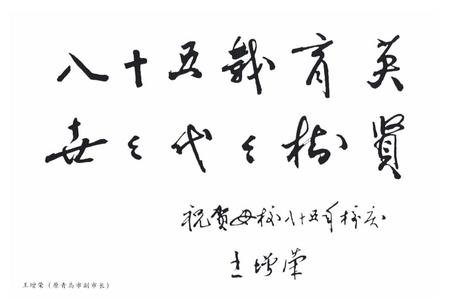 八十五载育英
世々代々树贤
祝贺母校八十五年校庆
王增荣
王增荣（原青岛市副市长）